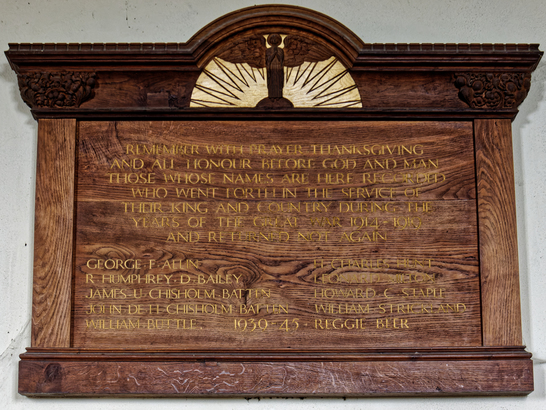 REMEMBER WITH PRAYER THANKSGIVING
AND ALL HONOUR BEFORE GOD AND MAN
THOSE WHOSE NAMES ARE HERE RECORDED
WHO WENT FORTH IN THE SERVICE OF
THEIR KING AND COUNTRY DURING THE
YEARS OF THE GREAT WAR
AND RETURNED NOT AGAIN
GEORGE F. ATLIN
R. HUMPHREY D. BAILEY
JAMES U. CHISHOLM BATTEN
JOHN DE H. CHISHOLM BATTEN
WILLIAM BUTTLE
CHARLES HUNT
HOWARD C. STAPLE
WILLIAM STRICKLAND
1939-45 · REGGIE BEER